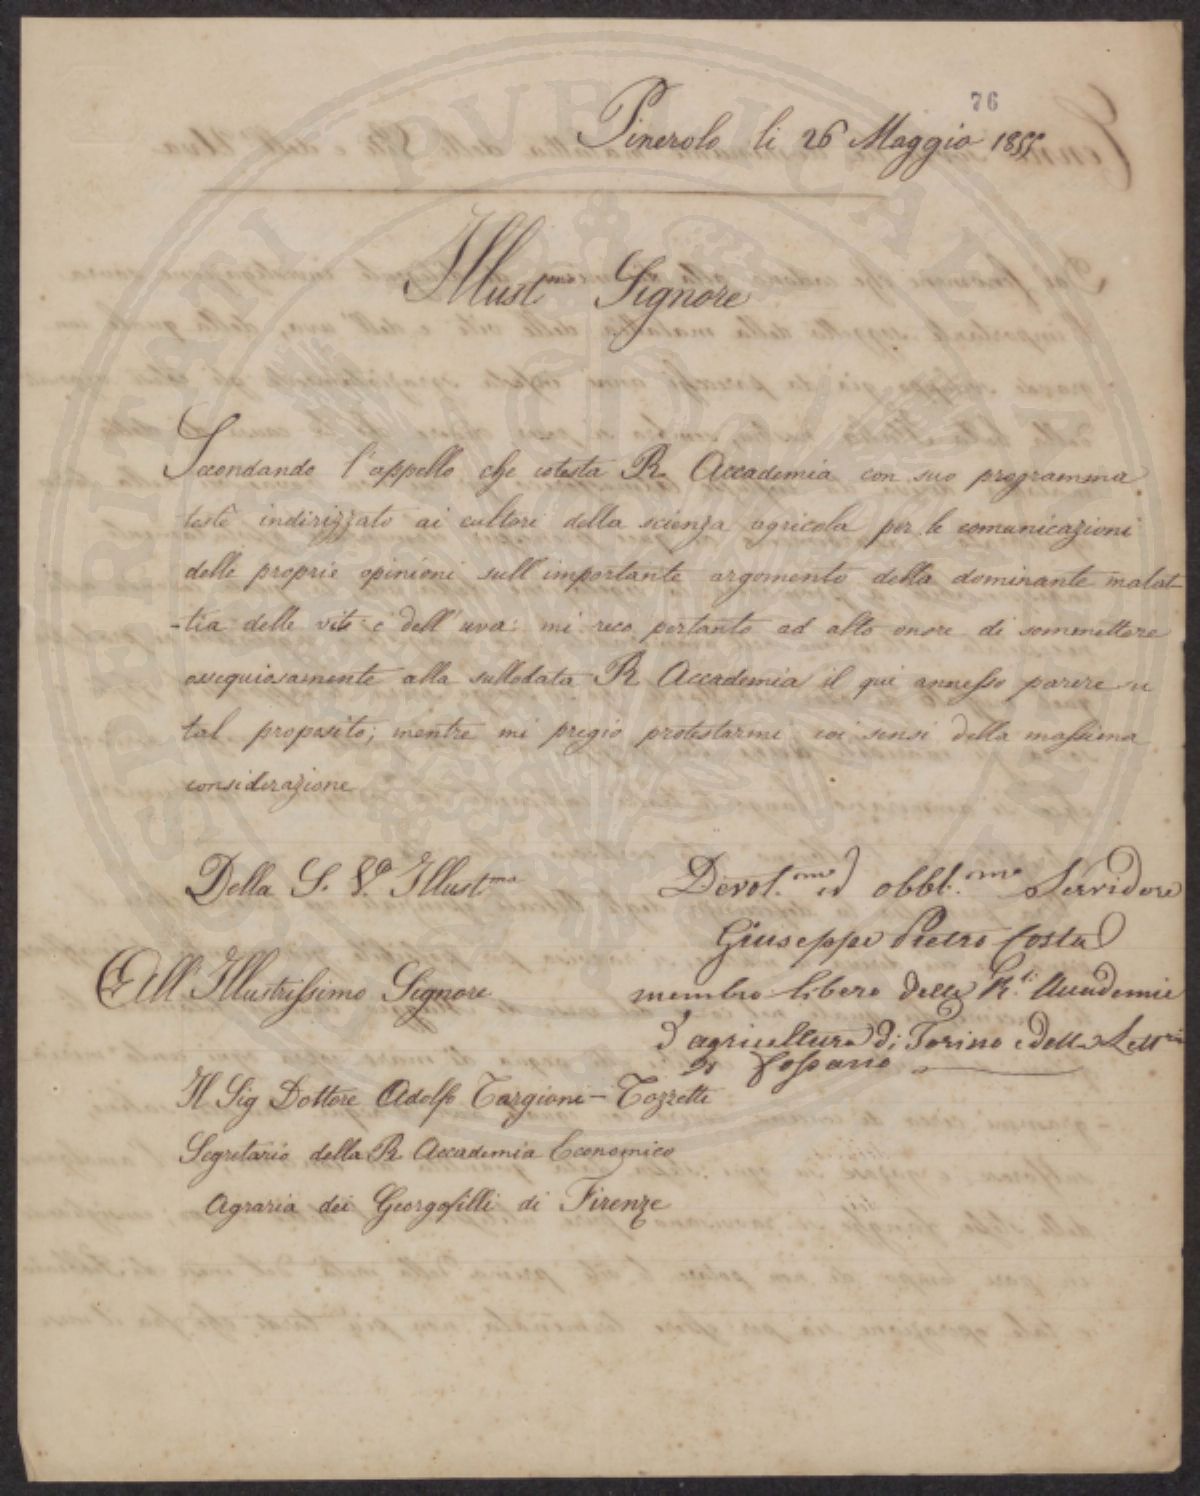 76
Pinerolo li 26 Maggio 1855
Illust.mo Signore
Secondando l'appello che cotesta R. Accademia con suo programma
testè indirizzato ai cultori della scienza agricola per le comunicazioni
delle proprie opinioni sull'importante argomento della dominante malat-
-tia delle vite e dell'uva: mi reco pertanto ad alto onore di sommettere
ossequiosamente alla sullodata R Accademia il qui annesso parere su
tal proposito; mentre mi pregio protestarmi coi sensi della massima
considerazione
Della S. V.a Illust.ma
Devot.mo ed obbl.mo Servidore
Giuseppe Pietro Costa
membro libero della R. Accademia
d'agricoltura di Torino e della
di Fossano
All'Illustrissimo Signore
Il Sig Dottore Adolfo Targioni-Tozzetti
Segretario della R Accademia Economico
Agraria dei Georgofilli di Firenze
SPERITATI PVBLICAE